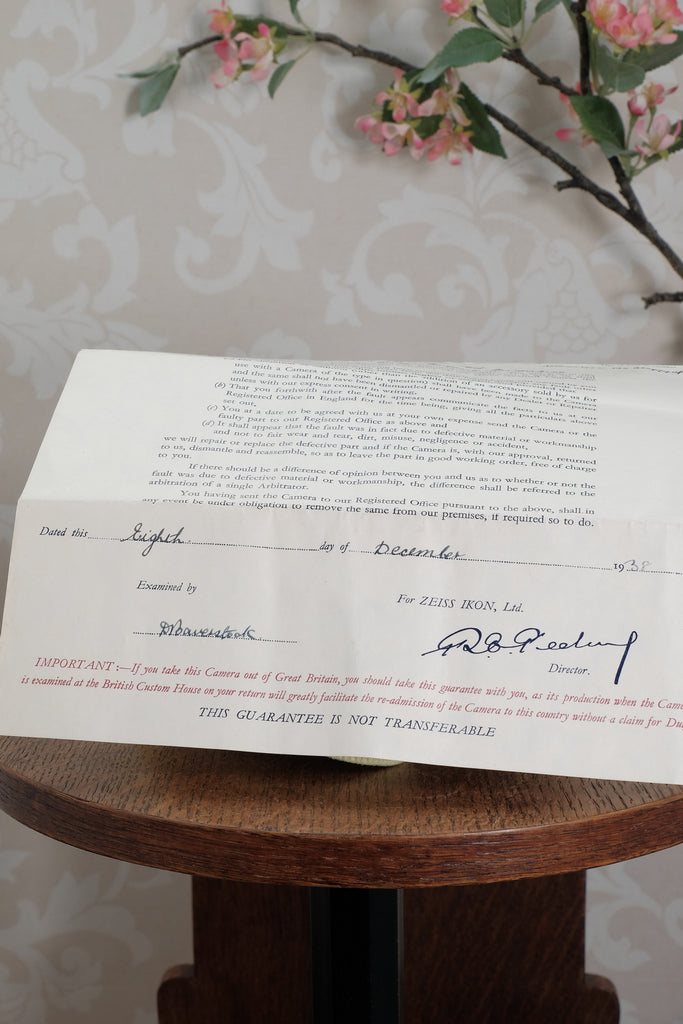 use with a Camera of the type in question) shall
and the same shall not have been dismantled or repaired
unless with our express consent in writing.
(b) That you forthwith after the fault appears communicate the facts to us at our
Registered Office in England for the time being, giving all the particulars above
set out,
(c) You at a date to be agreed with us at your own expense send the Camera or the
faulty part to our Registered Office as above and
(d) It shall appear that the fault was in fact due to defective material or workmanship
and not to fair wear and tear, dirt, misuse, negligence or accident,
we will repair or replace the defective part and if the Camera is, with our approval, returned
to us, dismantle and reassemble, so as to leave the part in good working order, free of charge
to you.
If there should be a difference of opinion between you and us as to whether or not the
fault was due to defective material or workmanship, the difference shall be referred to the
arbitration of a single Arbitrator.
You having sent the Camera to our Registered Office pursuant to the above, shall in
any event be under obligation to remove the same from our premises, if required so to do.
Dated this Eighth day of December 1938
Examined by
For ZEISS IKON, Ltd.
Director.
IMPORTANT:—If you take this Camera out of Great Britain, you should take this guarantee with you, as its production when the Came
is examined at the British Custom House on your return will greatly facilitate the re-admission of the Camera to this country without a claim for Du
THIS GUARANTEE IS NOT TRANSFERABLE